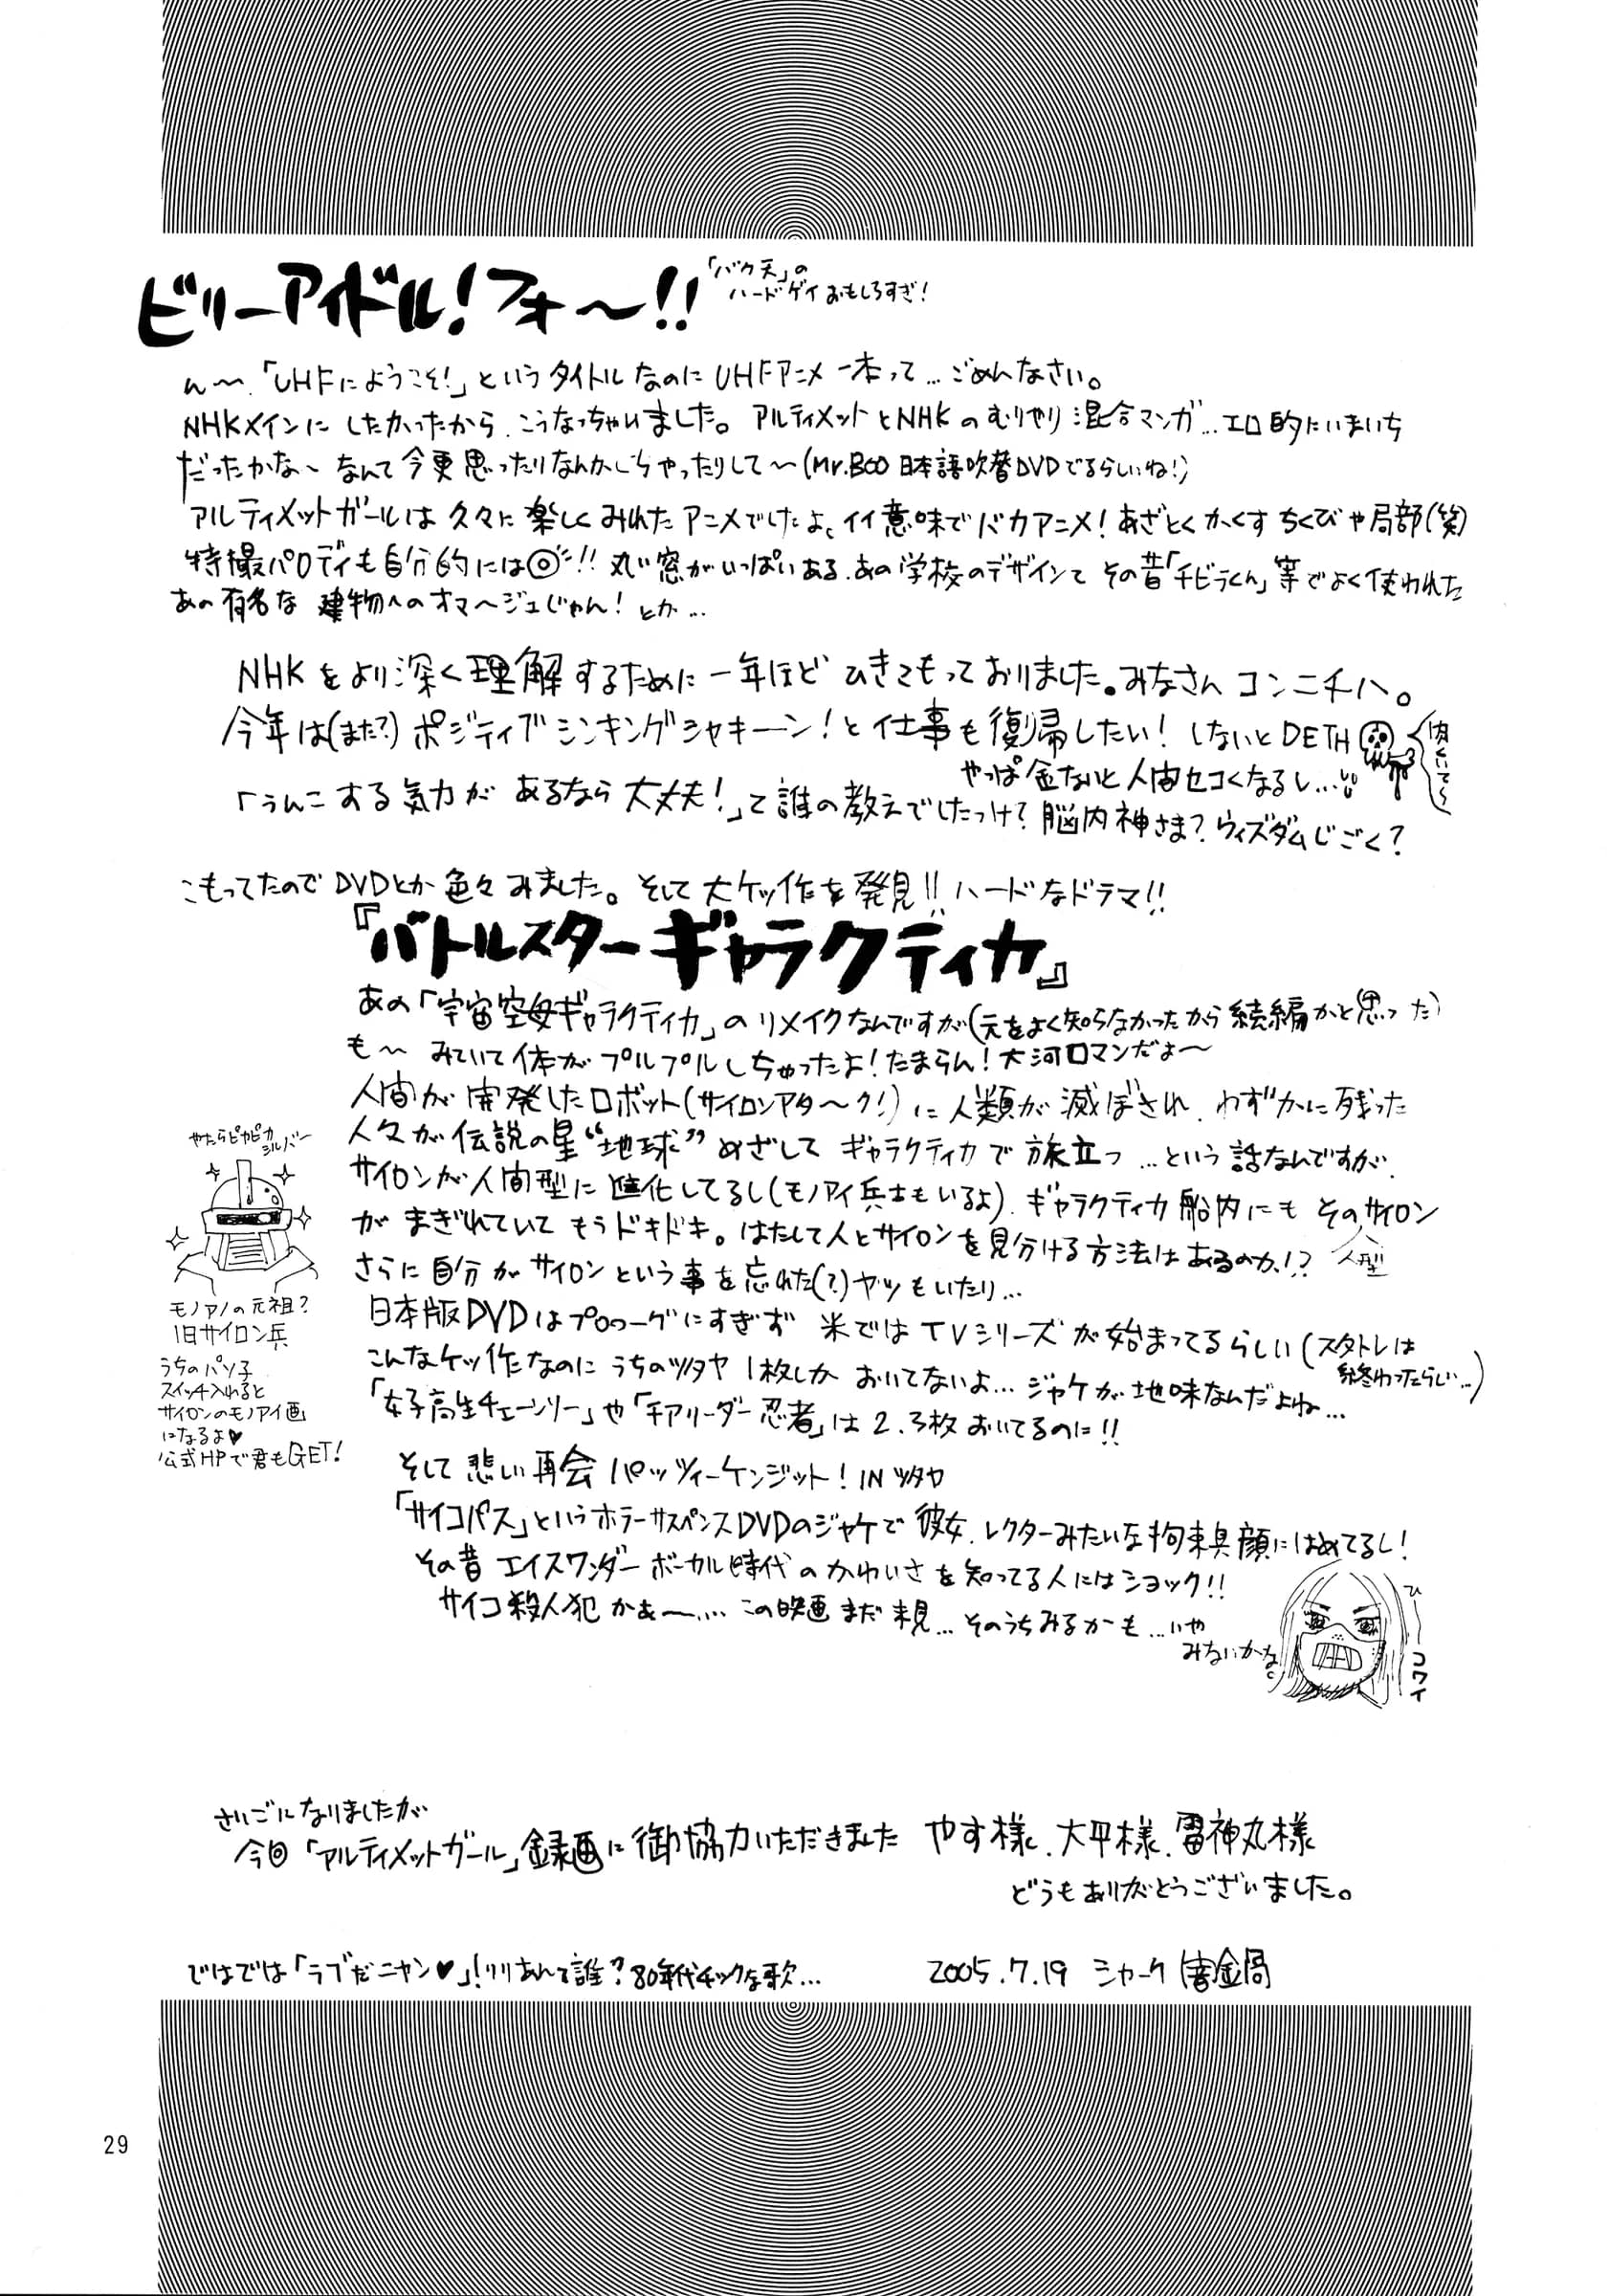 ビリーアイドル！フォ〜!!
「バク天」の
ハードゲイおもしろすぎ！
ん〜.「UHFにようこそ！」というタイトルなのにUHFアニメ一本って…ごめんなさい。
NHKメインにしたかったから、こうなっちゃいました。アルティメットとNHKのむりやり混合マンガ…エロ的にいまいち
だったかな〜なんて今更思ったりなんかしちゃったりして〜(Mr.BOO日本語吹替DVDでるらしいね！)
アルティメットガールは久々に楽しくみれたアニメでしたよ、イイ意味でバカアニメ！あざとくかくすちくびや局部(笑)
特撮パロディも自分的には◎!! 丸い窓がいっぱいある、あの学校のデザインてその昔「チビラくん」等でよく使われた
あの有名な建物へのオマージュじゃん！とか…
NHKをより深く理解するために一年ほどひきこもっておりました。みなさんコンニチハ。
今年は(また？)ポジティブシンキングシャキーン！と仕事も復帰したい！しないとDETH
肉くいて〜
やっぱ金ないと人間セコくなるし…
「うんこする気力があるなら大丈夫！」て誰の教えでしたっけ？脳内神さま？ウィズダムじごく？
こもってたのでDVDとか色々みました。そして大ケッ作を発見!!ハードなドラマ!!
『バトルスターギャラクティカ』
あの「宇宙空母ギャラクティカ」のリメイクなんですが(元をよく知らなかったから続編かと思った)
も〜みていて体がプルプルしちゃったよ！たまらん！大河ロマンだよ〜
人間が開発したロボット(サイロンアタ〜ク！)に人類が滅ぼされ、わずかに残った
人々が伝説の星“地球”めざしてギャラクティカで旅立つ…という話なんですが、
サイロンが人間型に進化してるし(モノアイ兵士もいるよ)、ギャラクティカ船内にもそのサイロン
人型
がまぎれていてもうドキドキ。はたして人とサイロンを見分ける方法はあるのか!?
さらに自分がサイロンという事を忘れた(?)ヤツもいたり…
日本版DVDはプロローグにすぎず米ではTVシリーズが始まってるらしい(スタトレは
終わったらしい…)
こんなケッ作なのにうちのツタヤ1枚しかおいてないよ…ジャケが地味なんだよね…
「女子高生チェーンソー」や「チアリーダー忍者」は2、3枚おいてるのに!!
やたらピカピカ
シルバー
モノアイの元祖？
旧サイロン兵
うちのパソ子
スイッチ入れると
サイロンのモノアイ画
になるよ♥
公式HPで君もGET！
そして悲しい再会パッツィーケンジット！INツタヤ
「サイコパス」というホラーサスペンスDVDのジャケで彼女、レクターみたいな拘束具顔にはめてるし！
その昔エイスワンダーボーカル時代のかわいさを知ってる人にはショック!!
サイコ殺人犯かぁ〜…この映画まだ未見…そのうちみるかも…いや
みないかな。
ひ〜コワイ
さいごになりましたが
今回「アルティメットガール」録画に御協力いただきました やす様、大平様、雷神丸様
どうもありがとうございました。
ではでは「ラブだニャン♥」！リリあんて誰？80年代チックな歌…
2005.7.19 シャーク
29